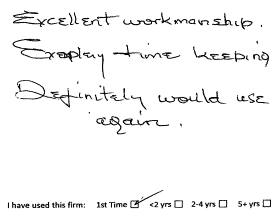 Excellent workmanship.
Exeplay time keeping
Definitely would use
again.
I have used this firm: 1st Time ☑ <2 yrs ☐ 2-4 yrs ☐ 5+ yrs ☐